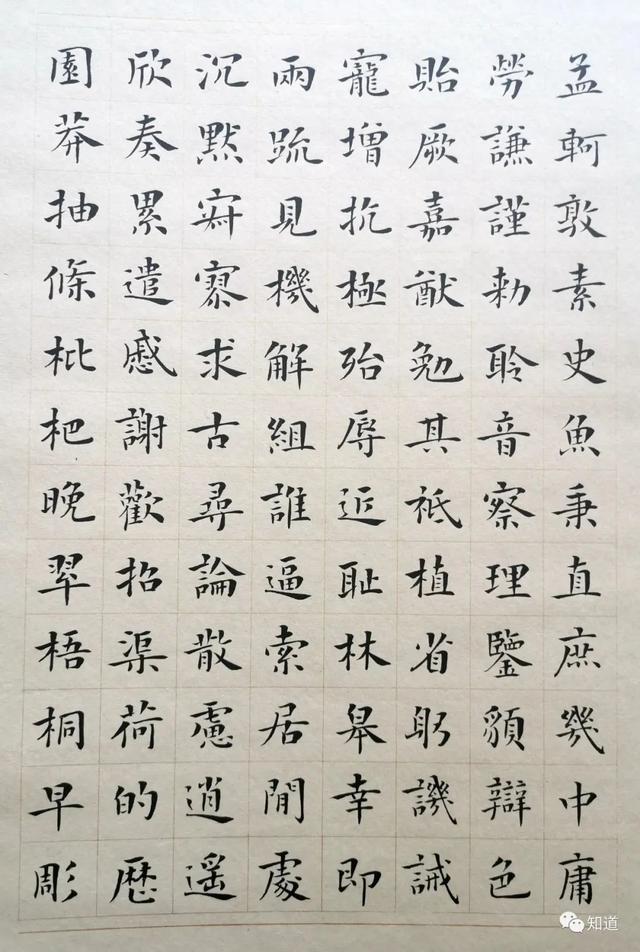 孟軻敦素史魚秉直庶幾中庸
勞謙謹勅聆音察理鑒貌辯色
貽厥嘉猷勉其祗植省躬譏誡
寵增抗極殆辱近恥林皋幸即
兩疏見機解組誰逼索居閒處
沉默寂寥求古尋論散慮逍遙
欣奏累遣慼謝歡招渠荷的歷
園莽抽條枇杷晚翠梧桐早彫
知道